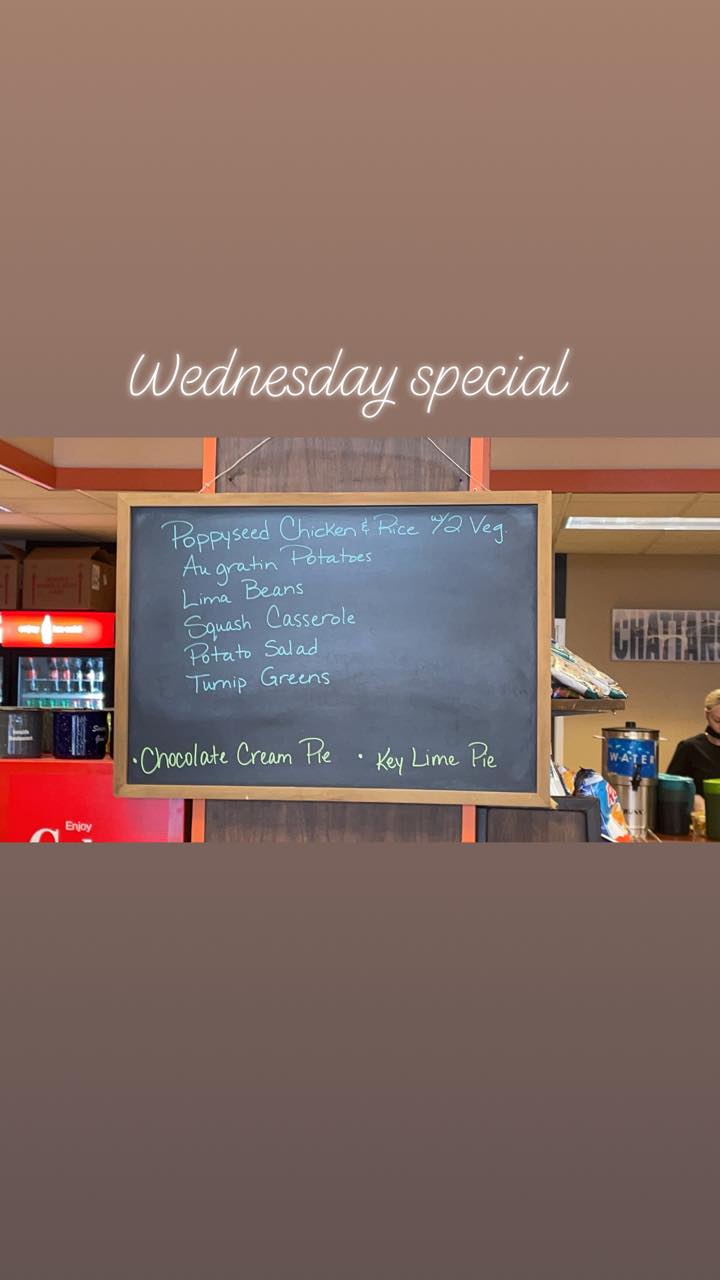 Wednesday special
Poppyseed Chicken & Rice w/2 Veg.
Au gratin Potatoes
Lima Beans
Squash Casserole
Potato Salad
Turnip Greens
• Chocolate Cream Pie • Key Lime Pie
CHATTAN
WATER
enjoy
Enjoy